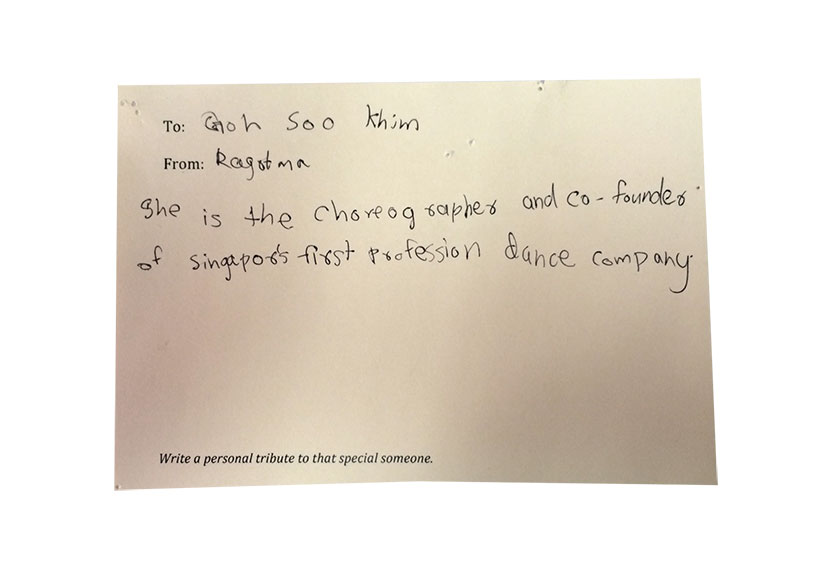 To: Goh Soo Khim
From: Ragotma
She is the choreographer and co-founder
of singapor's first profession dance company.
Write a personal tribute to that special someone.